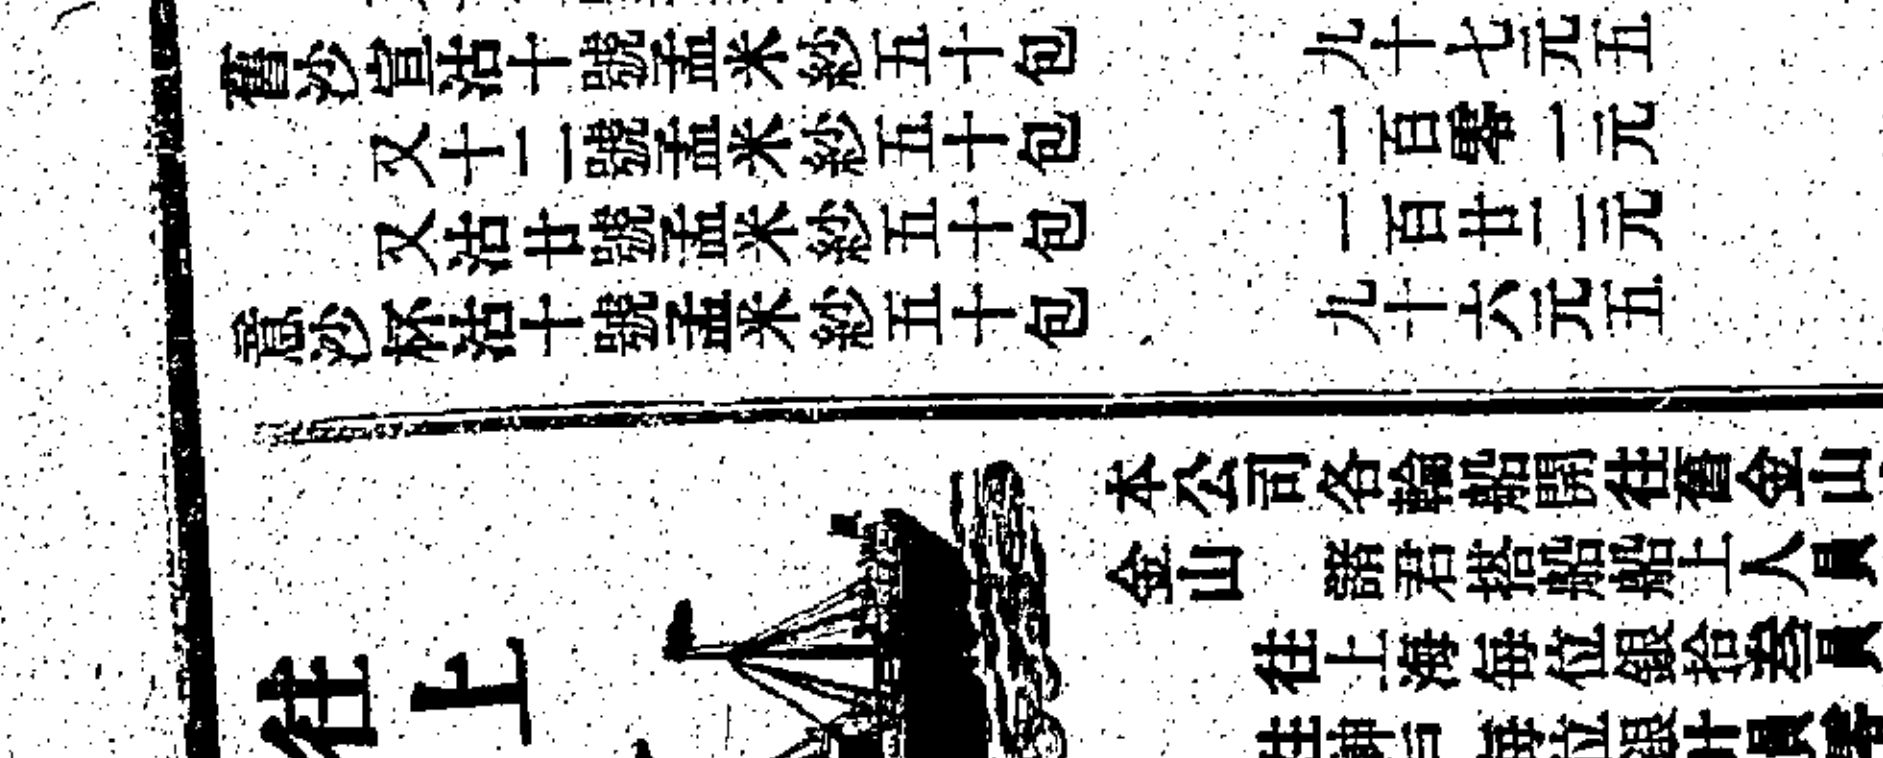 舊沙宣沽十號孟米紗五十包　九十七元五
又十二號孟米紗五十包　一百零一元
又沽廿號孟米紗五十包　一百廿二元
意沙杯沽十號孟米紗五十包　九十六元五
本公司各輪船開往舊金山
金山　諸君搭船船上人員
往上海每位銀拾壹員
每位銀廿
往上